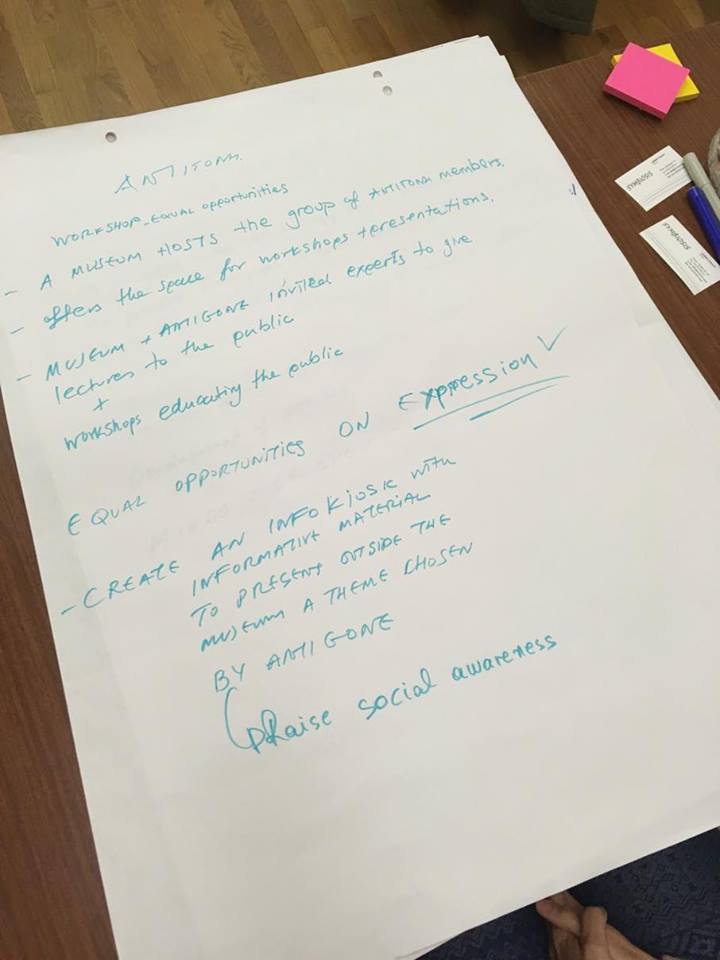 ANTIГОΝΗ
WORKSHOP_EQUAL OPPORTUNITIES
- A MUSEUM HOSTS the group of ANTIГОΝΗ members.
- offers the space for workshops + presentations.
- MUSEUM + ANTIGONE invited experts to give
lectures to the public
+
workshops educating the public
EQUAL OPPORTUNITIES ON EXPRESSION ✓
- CREATE AN INFO KIOSK with
INFORMATIVE MATERIAL
TO PRESENT OUTSIDE THE
MUSEUM A THEME CHOSEN
BY ANTIGONE
Raise social awareness